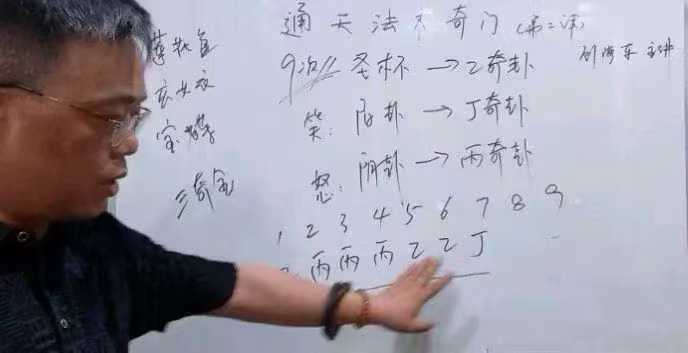 通天法本奇门(第二课)
刘海东 主讲
9次// 圣杯 → 乙奇卦
笑: 阳卦 → 丁奇卦
怒: 阴卦 → 丙奇卦
1 2 3 4 5 6 7 8 9
丙 丙 丙 乙 乙 丁
玄女
三奇